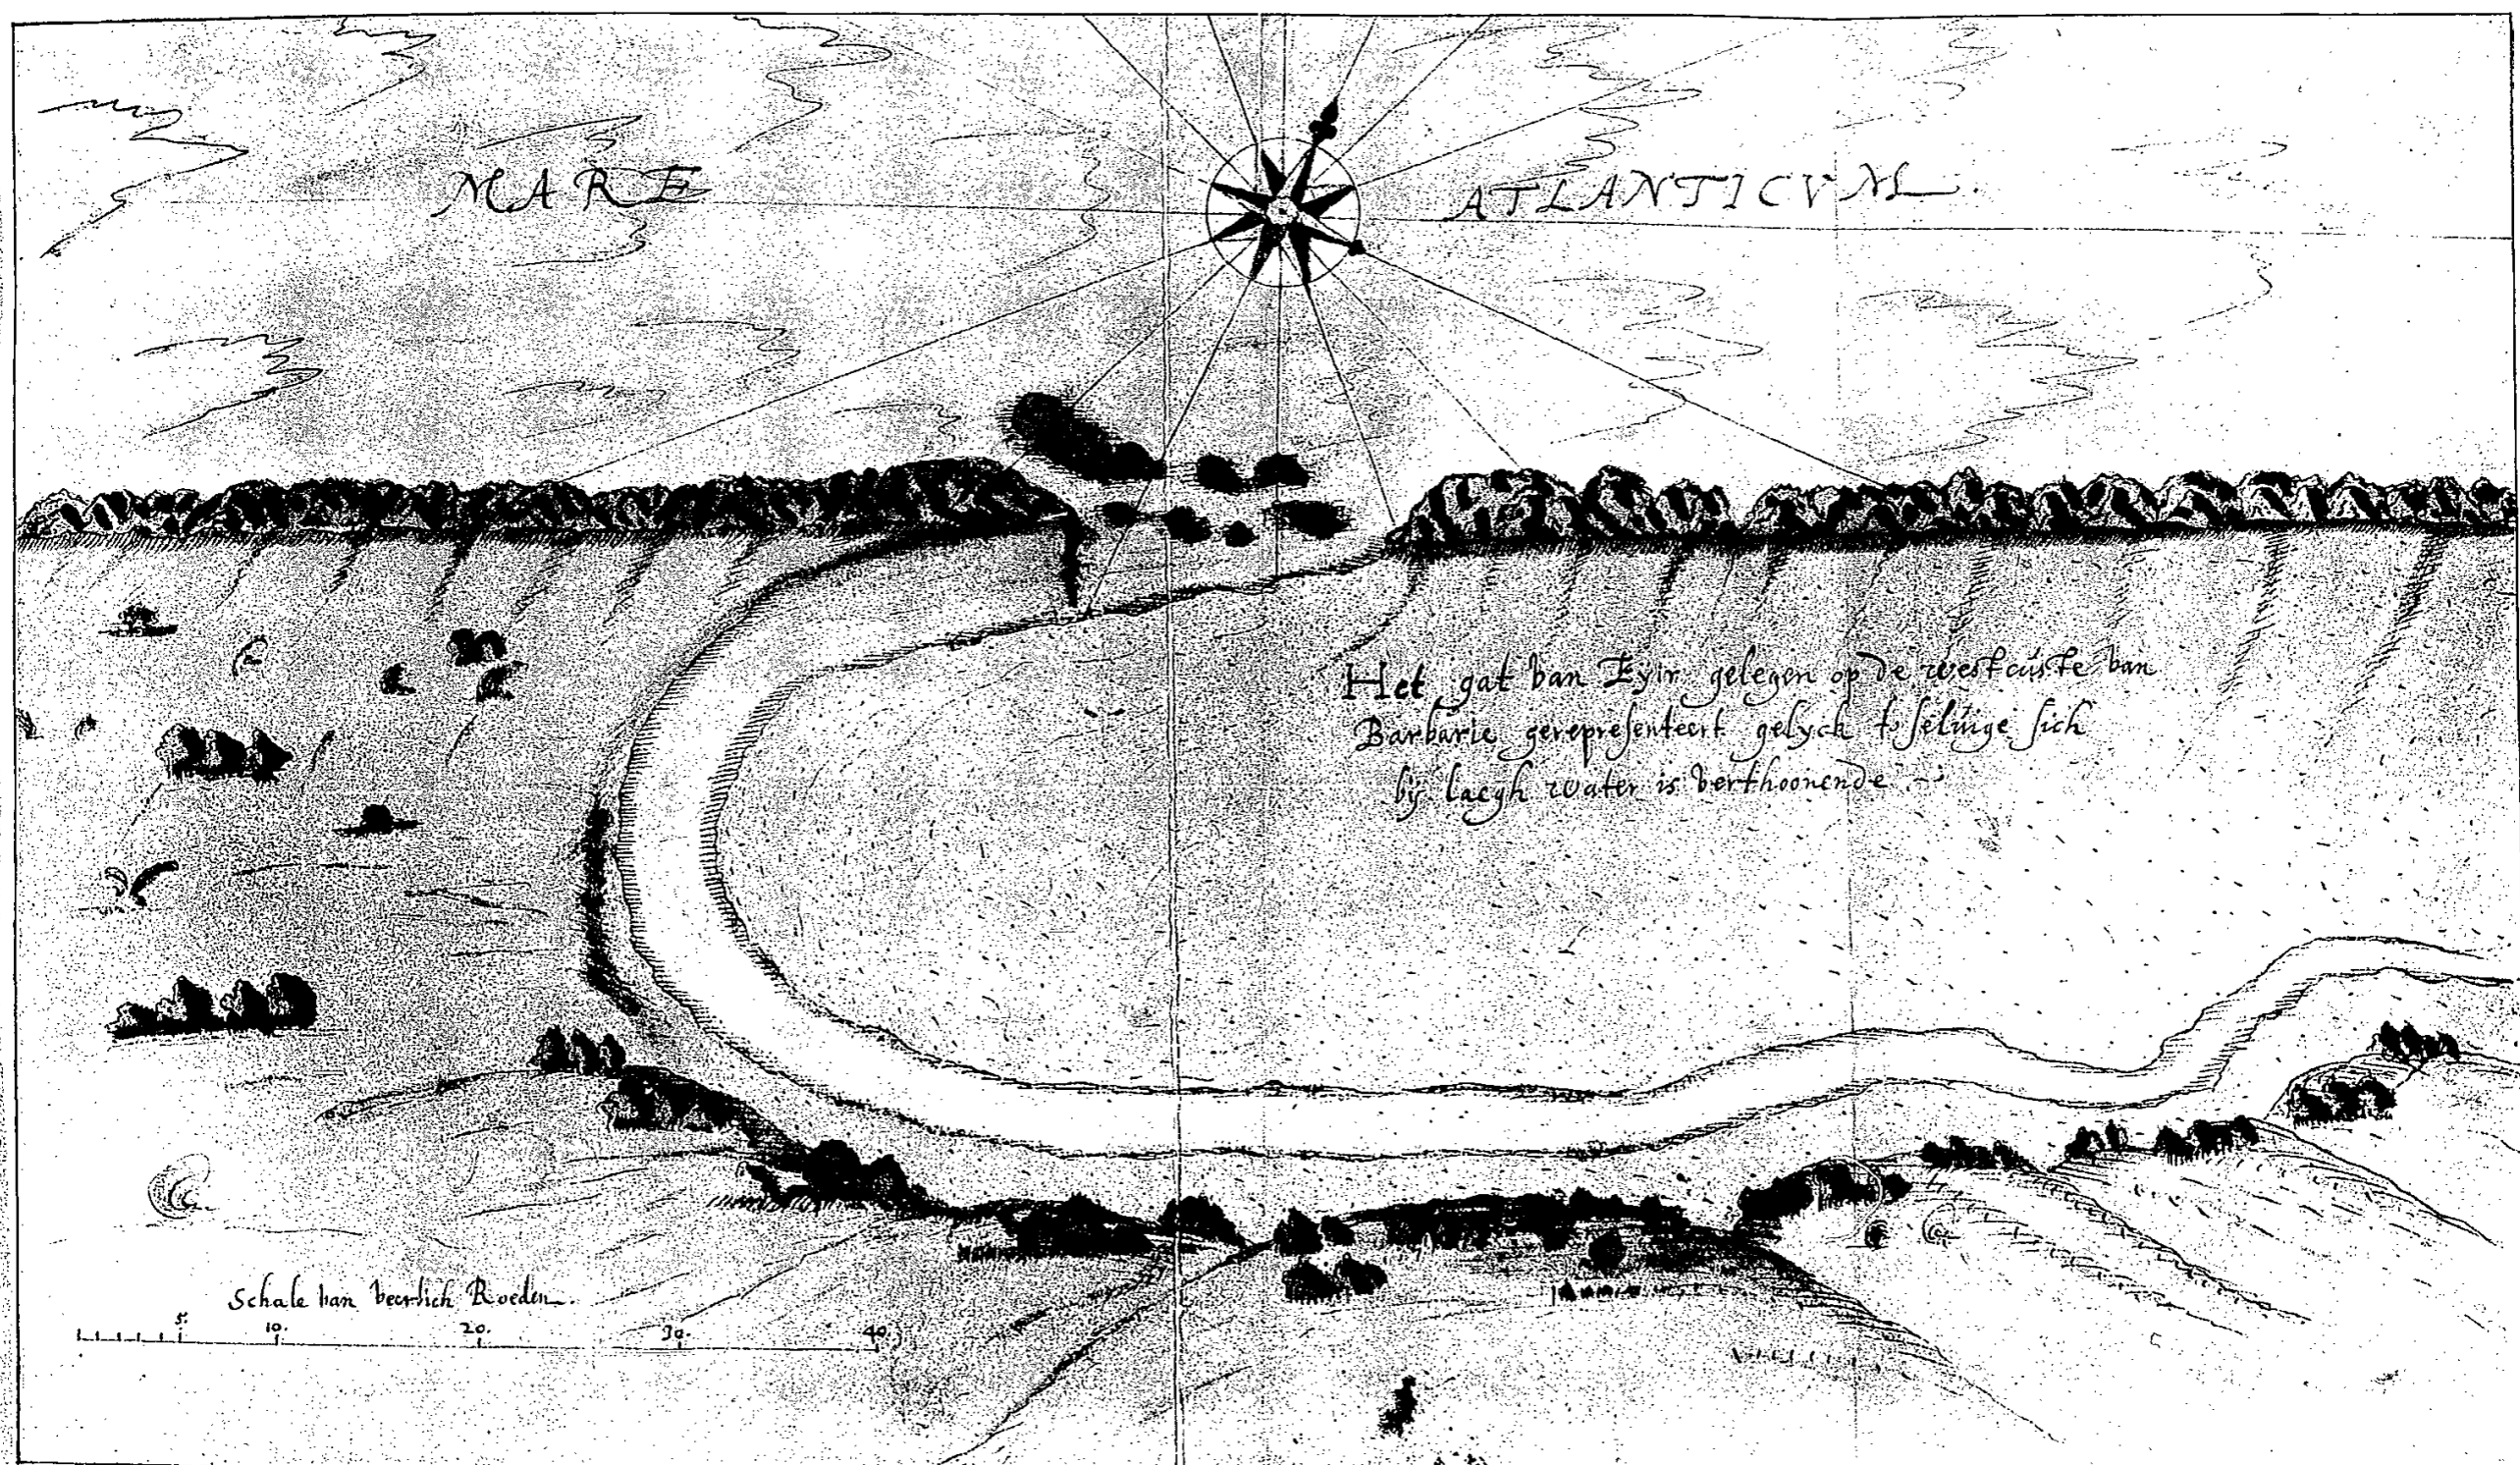 MARE ATLANTICVM
Het gat van Eyir gelegen op de westcuste van
Barbarie gerepresenteert gelyck t selvige sich
bij laegh water is verthoonende
Schale van veertich Roeden.
5. 10. 20. 30. 40.